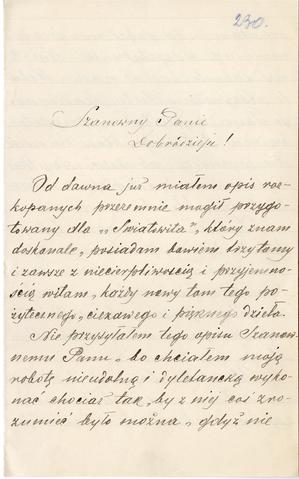 230.
Szanowny Panie
Dobrodzieju!
Od dawna już miałem opis roz-
kopanych przezemnie mogił przygo-
towany dla "Światowita", który znam
doskonale, posiadam bowiem trzy tomy
i zawsze z niecierpliwością i przyjemno-
ścią witam, każdy nowy tom tego po-
żytecznego, ciekawego i pięknego dzieła.
Nie przysyłałem tego opisu Szanow-
nemu Panu, bo chciałem moją
robotę nieudolną i dyletancką wyko-
nać chociaż tak, by z niej coś zro-
zumieć było można, gdyż nie